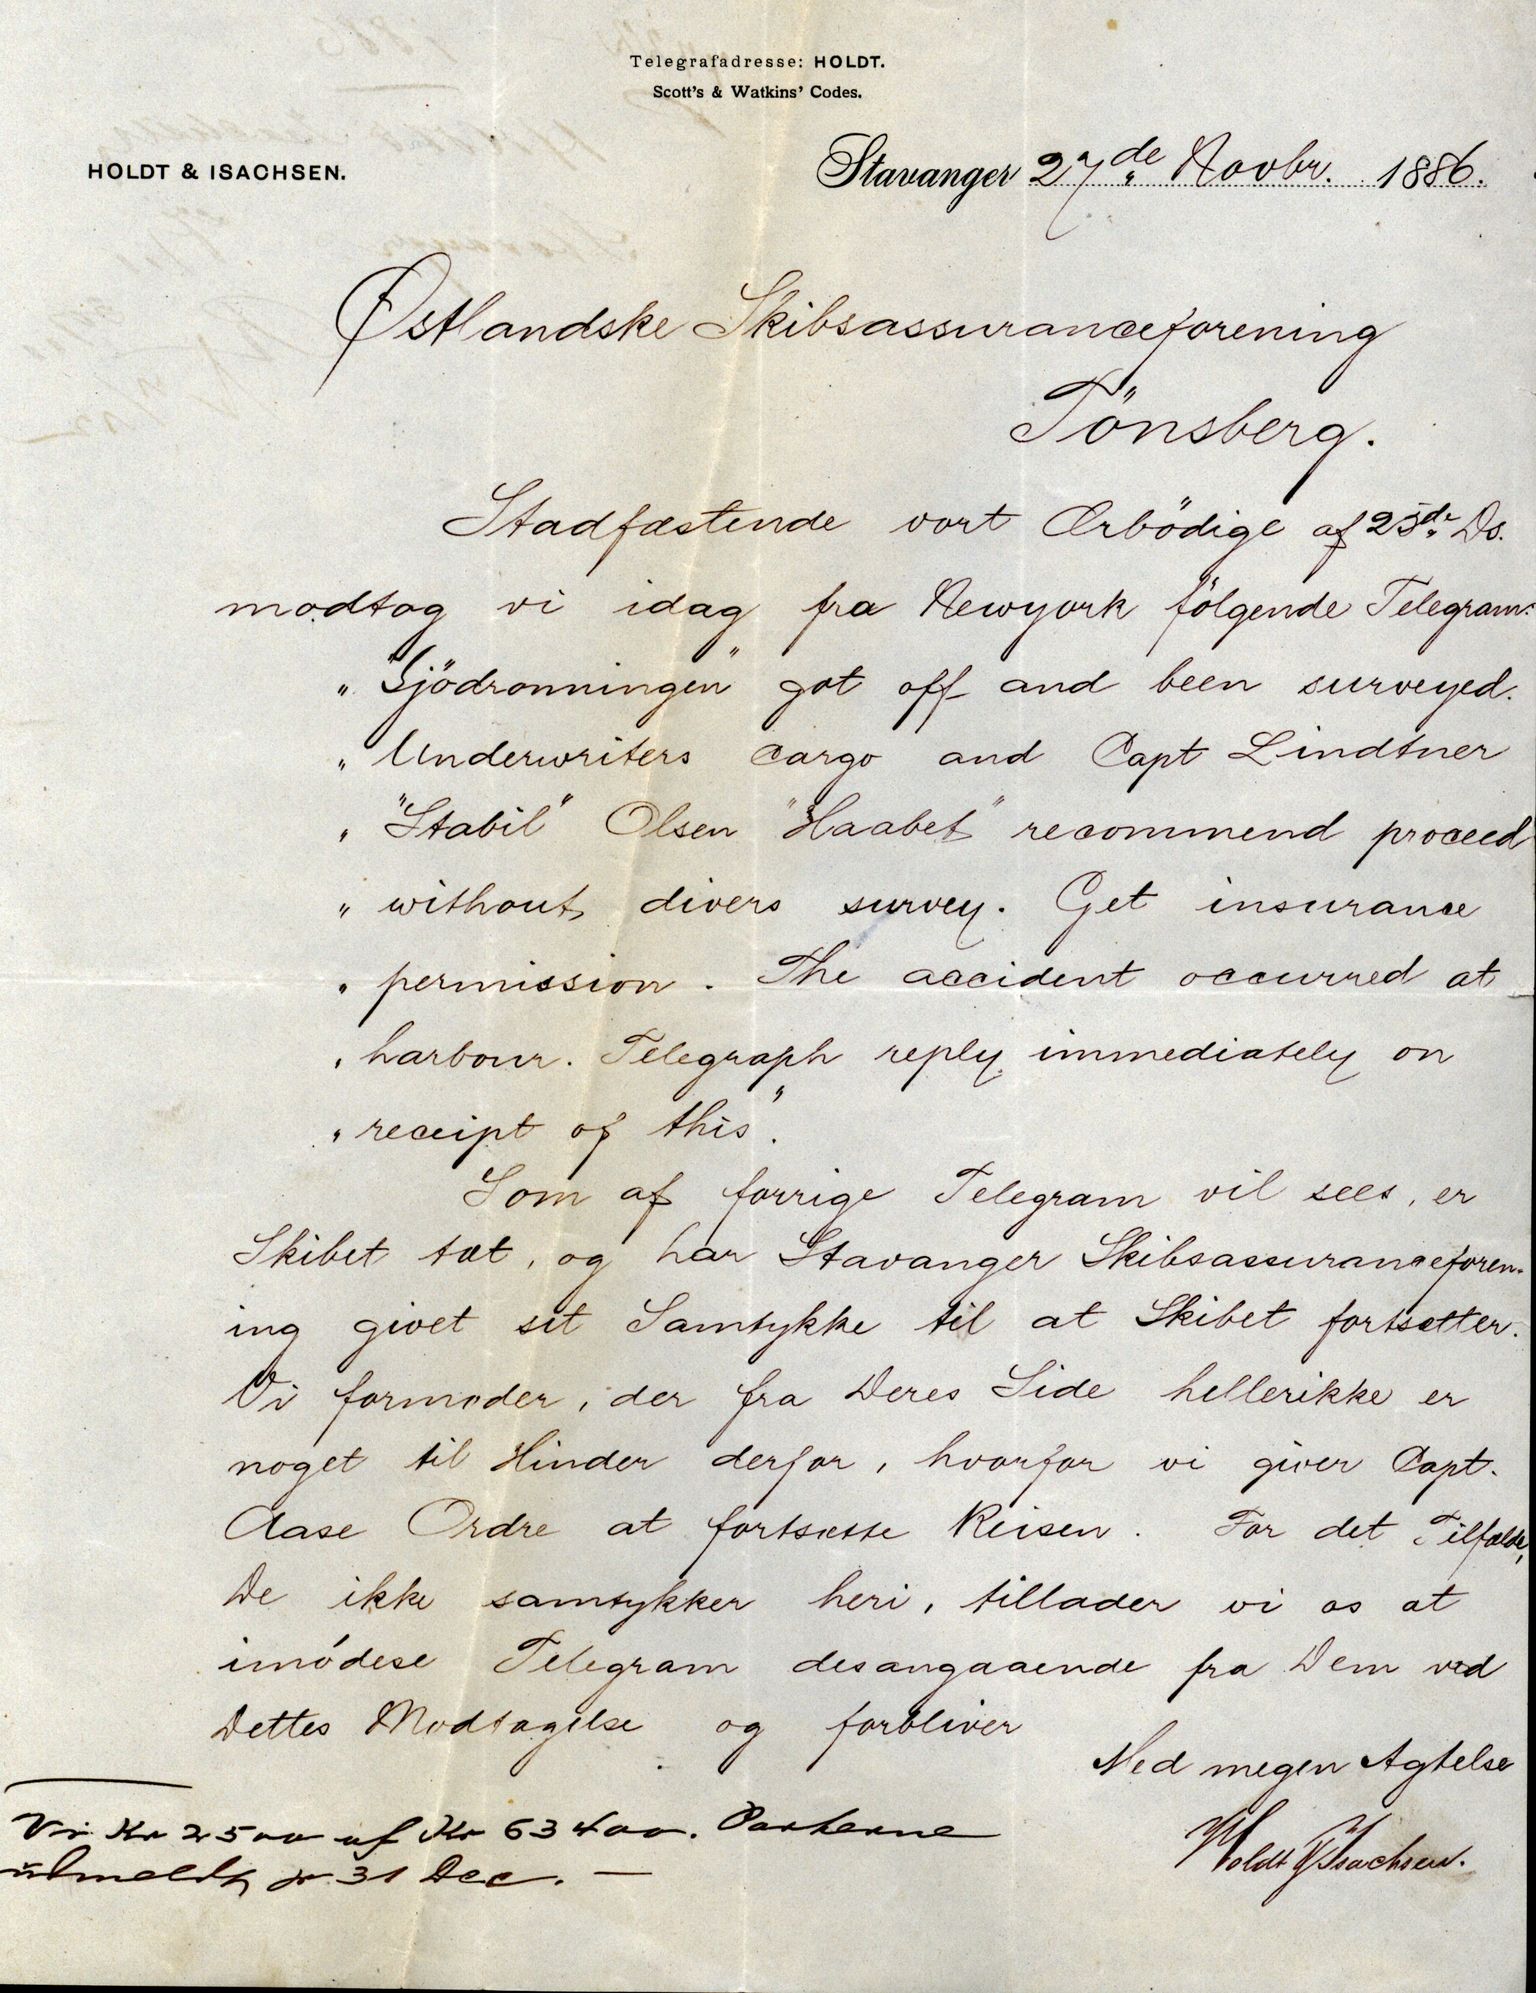 Telegrafadresse: HOLDT.
Scott's & Watkins' Codes.
HOLDT & ISACHSEN.
Stavanger 27de Novbr. 1886.
Østlandske Skibsassuranceforening
Tönsberg.
Stadfæstende vort Ærbödige af 25de Ds.
modtog vi idag fra Newyork fölgende Telegram:
" "Sjödronningen" got off and been surveyed.
" Underwriters cargo and Capt Lindtner
" "Stabil" Olsen "Haabet" recommend proceed
" without divers survey. Get insurance
" permission. The accident occurred at
" harbour. Telegraph reply immediately on
" receipt of this".
Som af forrige Telegram vil sees, er
Skibet tæt, og har Stavanger Skibsassuranceforen-
ing givet sit Samtykke til at Skibet fortsætter.
Vi formoder, der fra Deres Side hellerikke er
noget til Hinder derfor, hvorfor vi giver Capt.
Aase Ordre at fortsætte Reisen. For det Tilfælde,
De ikke samtykker heri, tillader vi os at
imödese Telegram desangaaende fra Dem ved
Dettes Modtagelse og forbliver
Med megen Agtelse
Holdt & Isachsen.
Vi Kr 2500 af Kr 63400. Parterne
udmeldt pr 31 Dec. —